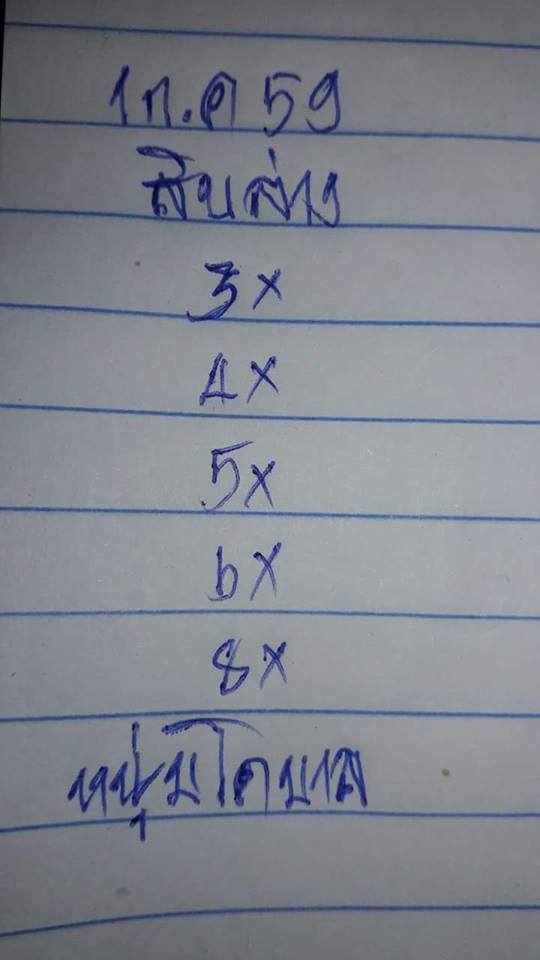 1ก.ค 59
สิบล่าง
3x
4x
5x
6x
8x
หนุ่มโคบาล